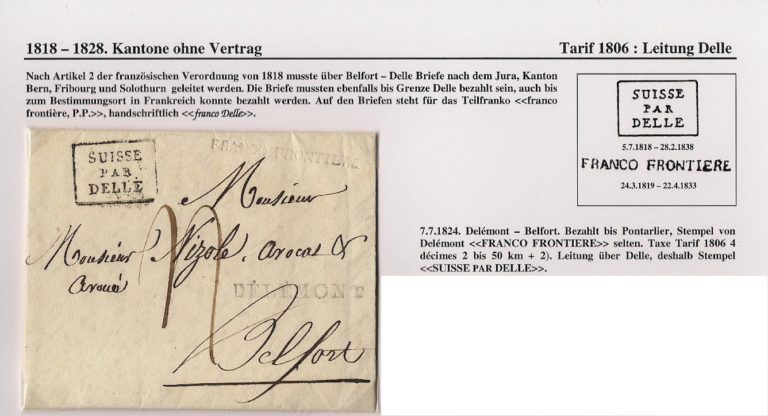 1818 – 1828. Kantone ohne Vertrag
Tarif 1806 : Leitung Delle
Nach Artikel 2 der französischen Verordnung von 1818 musste über Belfort – Delle Briefe nach dem Jura, Kanton
Bern, Fribourg und Solothurn geleitet werden. Die Briefe mussten ebenfalls bis Grenze Delle bezahlt sein, auch bis
zum Bestimmungsort in Frankreich konnte bezahlt werden. Auf den Briefen steht für das Teilfranko <<franco
frontière, P.P.>>, handschriftlich <<franco Delle>>.
SUISSE
PAR
DELLE
5.7.1818 – 28.2.1838
FRANCO FRONTIERE
24.3.1819 – 22.4.1833
7.7.1824. Delémont – Belfort. Bezahlt bis Pontarlier, Stempel von
Delémont <<FRANCO FRONTIERE>> selten. Taxe Tarif 1806 4
décimes 2 bis 50 km + 2). Leitung über Delle, deshalb Stempel
<<SUISSE PAR DELLE>>.
SUISSE
PAR
DELLE
FRANCO FRONTIERE
Monsieur
Monsieur Nizole, avocat &
avoué
DÉLÉMONT
Belfort